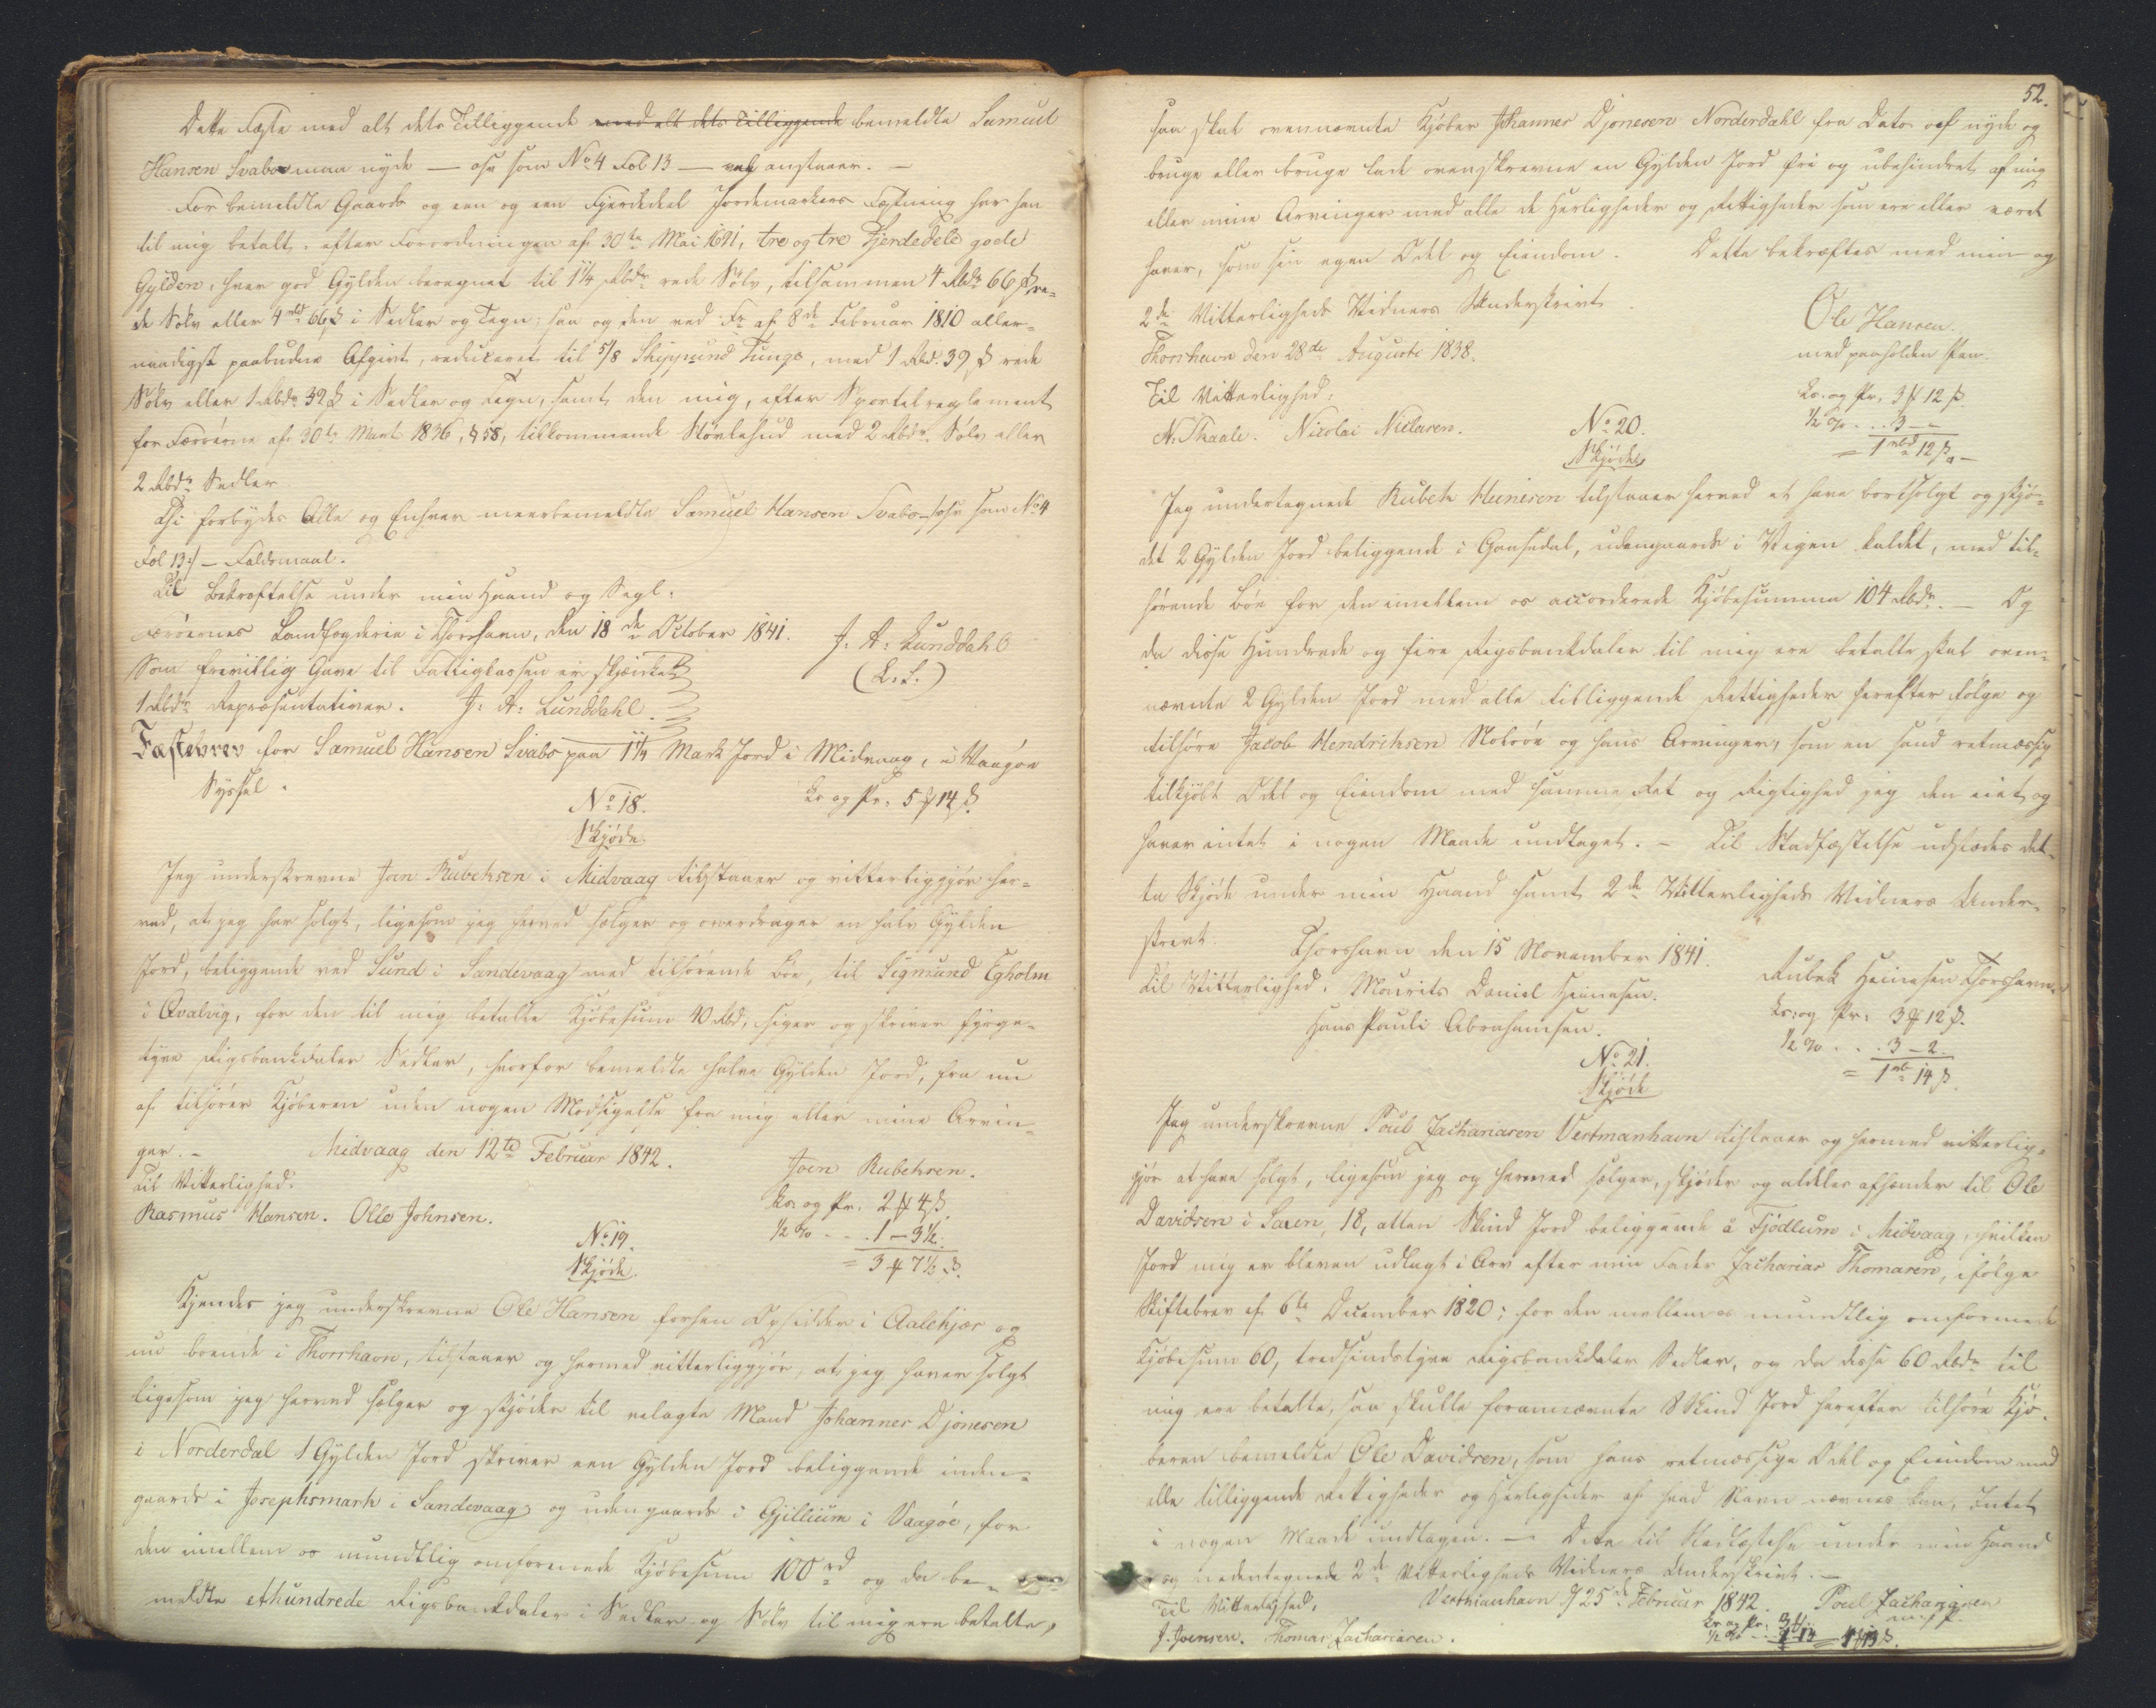 Dette Fæste med alt dets Tilliggende med alt dets Tilliggende bemeldte Samuel
Hansen Svaboe maa nyde — osv som No 4 Fol 13 — anstaaer. —
For bemeldte Gaards og een og een Fjerdedeel Jordemarkers Fæstning har han
til mig betalt, efter Forordningen af 30te Mai 1691, tre og tre Fjerdedele gode
Gylden, hver god Gylden beregnet til 1 1/4 Rbdr rede Sølv, tilsammen 4 Rbdr 66 ß re-
de Sølv eller 4 rbd 66 ß i Sedler og Tegn; saa og den ved Fr. af 8de Februar 1810 aller-
naadigst paabudne Afgivt, reduceret til 5/8 Skippund Tunge, med 1 Rbd. 39 ß rede
Sølv eller 1 Rbdr 39 ß i Sedler og Tegn, samt den mig, efter Sportelreglement
for Færøerne af 30te Marts 1836, § 58, tilkommende Støvlehud med 2 Rbdr Sølv eller
2 Rbdr Sedler
Thi forbydes Alle og Enhver meerbemeldte Samuel Hansen Svabo — /: osv som No 4
Fol 13 :/ — Faldsmaal.
Til Bekræftelse under min Haand og Segl.
Færøernes Landfogderie i Thorshavn, den 18de October 1841.
J. A. Lunddahl
(L. S.)
Som frivillig Gave til Fattigkassen er skjænket
1 Rbdr Repræsentativer. J. A. Lunddahl.
Fæstebrev for Samuel Hansen Svabo paa 1 1/4 Mark Jord i Midvaag, i Vaagøe
Syssel.
Ls. og Pr. 5 # 14 ß
No 18.
Skjøde
Jeg underskrevne Joen Rubeksen i Midvaag tilstaaer og vitterliggjør her-
ved, at jeg har solgt, ligesom jeg herved sælger og overdrager en halv Gylden
Jord, beliggende ved Sund i Sandevaag med tilhørende Bøe, til Sigmund Egholm
i Qvalvig, for den til mig betalte Kjøbesum 40 Rbd, siger og skriver fyrge-
tyve Rigsbankdaler Sedler, hvorfor bemeldte halve Gylden Jord, fra nu
af tilhører Kjøberen uden nogen Modsigelse fra mig eller mine Arvin-
ger. — Midvaag den 12te Februar 1842.
Joen Rubeksen.
Til Vitterlighed.
Rasmus Hansen. Olle Johnsen.
Ls. og Pr. 2 # 4 ß
1/2 % - - . 1 — 3 1/2.
= 3 # 7 1/2 ß.
No 19.
Skjøde.
Kjendes jeg underskrevne Ole Hansen forhen Opsidder i Aalekjær og
nu boende i Thorshavn, tilstaaer og hermed vitterliggjør, at jeg haver solgt
ligesom jeg herved sælger og skjøder til velagte Mand Johannes Djonesen
i Norderdal 1 Gylden Jord skriver een Gylden Jord beliggende inden-
gaards i Josephsmark i Sandevaag og udengaards i Gjillium i Vaagøe, for
den imellem os mundtlig omforenede Kjøbesum 100 rd og da be-
meldte ethundrede Rigsbankdaler i Sedler og Sølv til mig ere betalte,
52.
saa skal ovennævnte Kjøber Johannes Djonesen Norderdahl fra Dato af nyde og
bruge eller bruge lade ovenskrevne en Gylden Jord fri og ubehindret af mig
eller mine Arvinger med alle de Herligheder og Rettigheder som ere eller været
haver, som sin egen Odel og Eiendom. Dette bekræftes med min og
2de Vitterligheds Vidners Underskrivt.
Thorshavn den 28de Augusti 1838.
Ole Hansen.
med paaholden Pen.
Til Vitterlighed.
N. Thaale. Nicolai Nielasen.
Ls. og Pr. 3 # 12 ß
1/2 % - . . 3 — -
= 1 rbd 12 ß. —
No 20.
Skjøde
Jeg undertegnede Rubek Heinesen tilstaaer herved at have bortsolgt og skjø-
det 2 Gylden Jord beliggende i Gaasedal, udengaards i Vigen kaldet, med til-
hørende Bøe for den imellem os accorderede Kjøbesumma 104 Rbdr. — Og
da disse Hundrede og fire Rigsbankdaler til mig ere betalte skal oven-
nævnte 2 Gylden Jord med alle tilliggende Rettigheder herefter følge og
tilhøre Jacob Hendriksen Nolsøe og hans Arvinger, som en sand retmæssig
tilkjøbt Odel og Eiendom med samme Ret og Rigtighed jeg den eiet og
haver intet i nogen Maade undtaget. — Til Stadfæstelse udstædes det-
te Skjøde under min Haand samt 2de Vitterligheds Vidners Under-
skrivt. Thorshavn den 15 November 1841.
Rubek Heinesen Thorshavn.
Til Vitterlighed. Mourits Daniel Heinesen.
Hans Pauli Abrahamsen.
Ls. og Pr. 3 # 12 ß.
1/2 % . . . 3 — 2.
= 1 rb 14 ß.
No 21.
Skjøde
Jeg underskrevne Poul Zachariasen Vestmanhavn tilstaaer og hermed vitterlig-
gjør at have solgt, ligesom jeg og hermed sælger, skjøder og aldeles afhænder til Ole
Davidsen i Saxen, 18, atten Skind Jord beliggende á Fjødlum i Midvaag, hvilken
Jord mig er bleven udlagt i Arv efter min Fader Zacharias Thomasen, ifølge
Skiftebrev af 6te December 1820; for den mellem os mundtlig omforenede
Kjøbesum 60, tredsindstyve Rigsbankdaler Sedler, og da disse 60 Rbdr til
mig ere betalte, saa skulle forannævnte 18 Skind Jord herefter tilhøre Kjø-
beren bemeldte Ole Davidsen, som hans retmæssige Odel og Eiendom med
alle tilliggende Rettigheder og Herligheder af hvad Navn nævnes kan, Intet
i nogen Maade undtagen. — Dette til Stadfæstelse under min Haand
og nedentegnede 2de Vitterligheds Vidners Underskrivt. —
Vestmanhavn d 25de Februar 1842. Poul Zachariasen
m. f. P.
Til Vitterlighed,
J. Joensen. Thomas Zachariasen.
Ls og Pr. 3 #
1/2 % - - 1 - 13 = 4 # 13 ß.